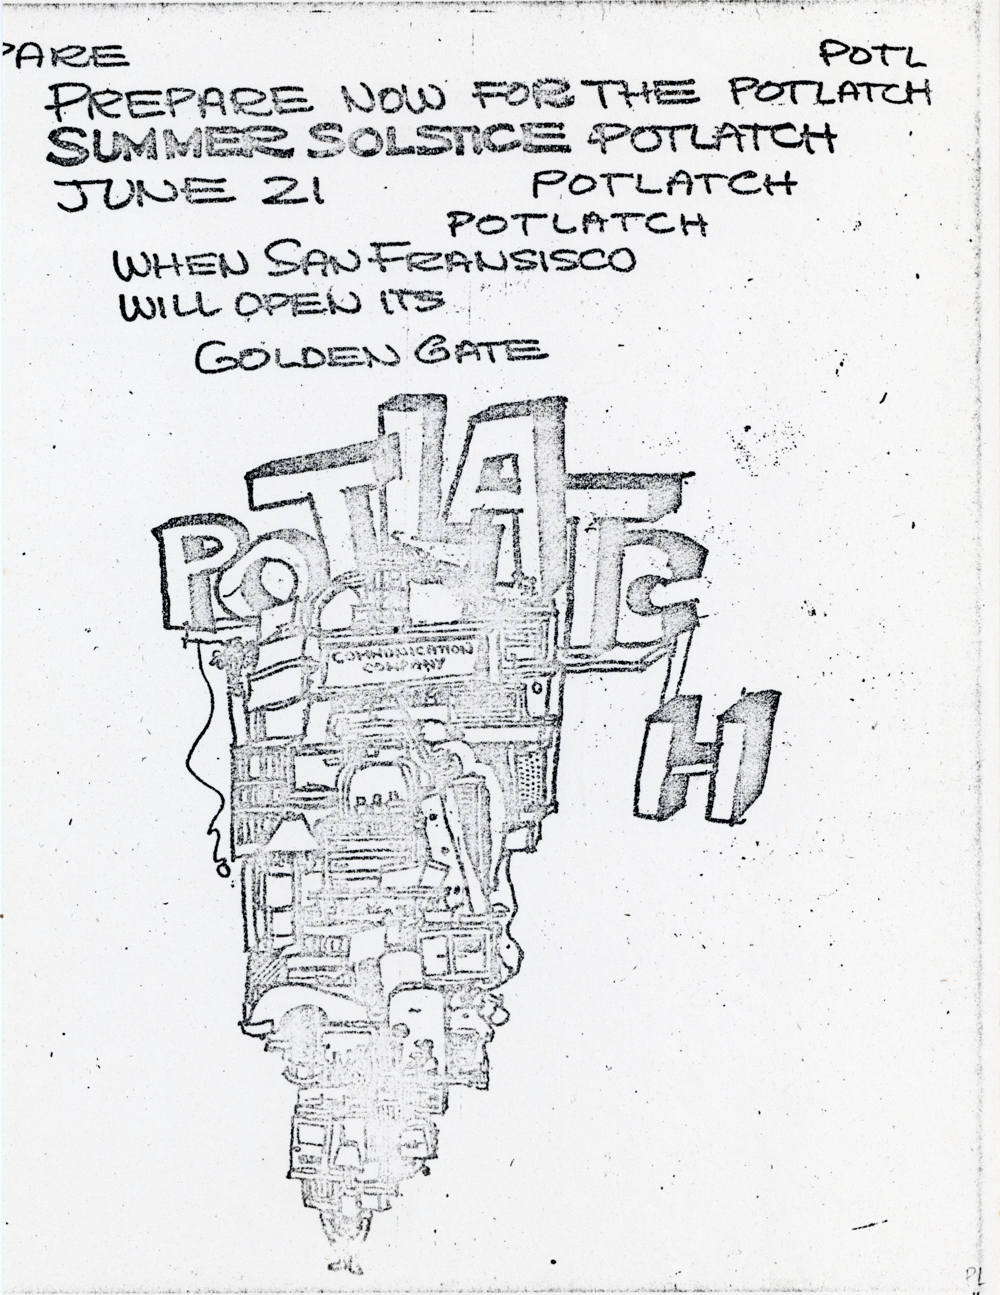 PARE POTL
PREPARE NOW FOR THE POTLATCH
SUMMER SOLSTICE POTLATCH
JUNE 21 POTLATCH
POTLATCH
WHEN SAN FRANSISCO
WILL OPEN ITS
GOLDEN GATE
POTLATCH
COMMUNICATION
COMPANY
PL